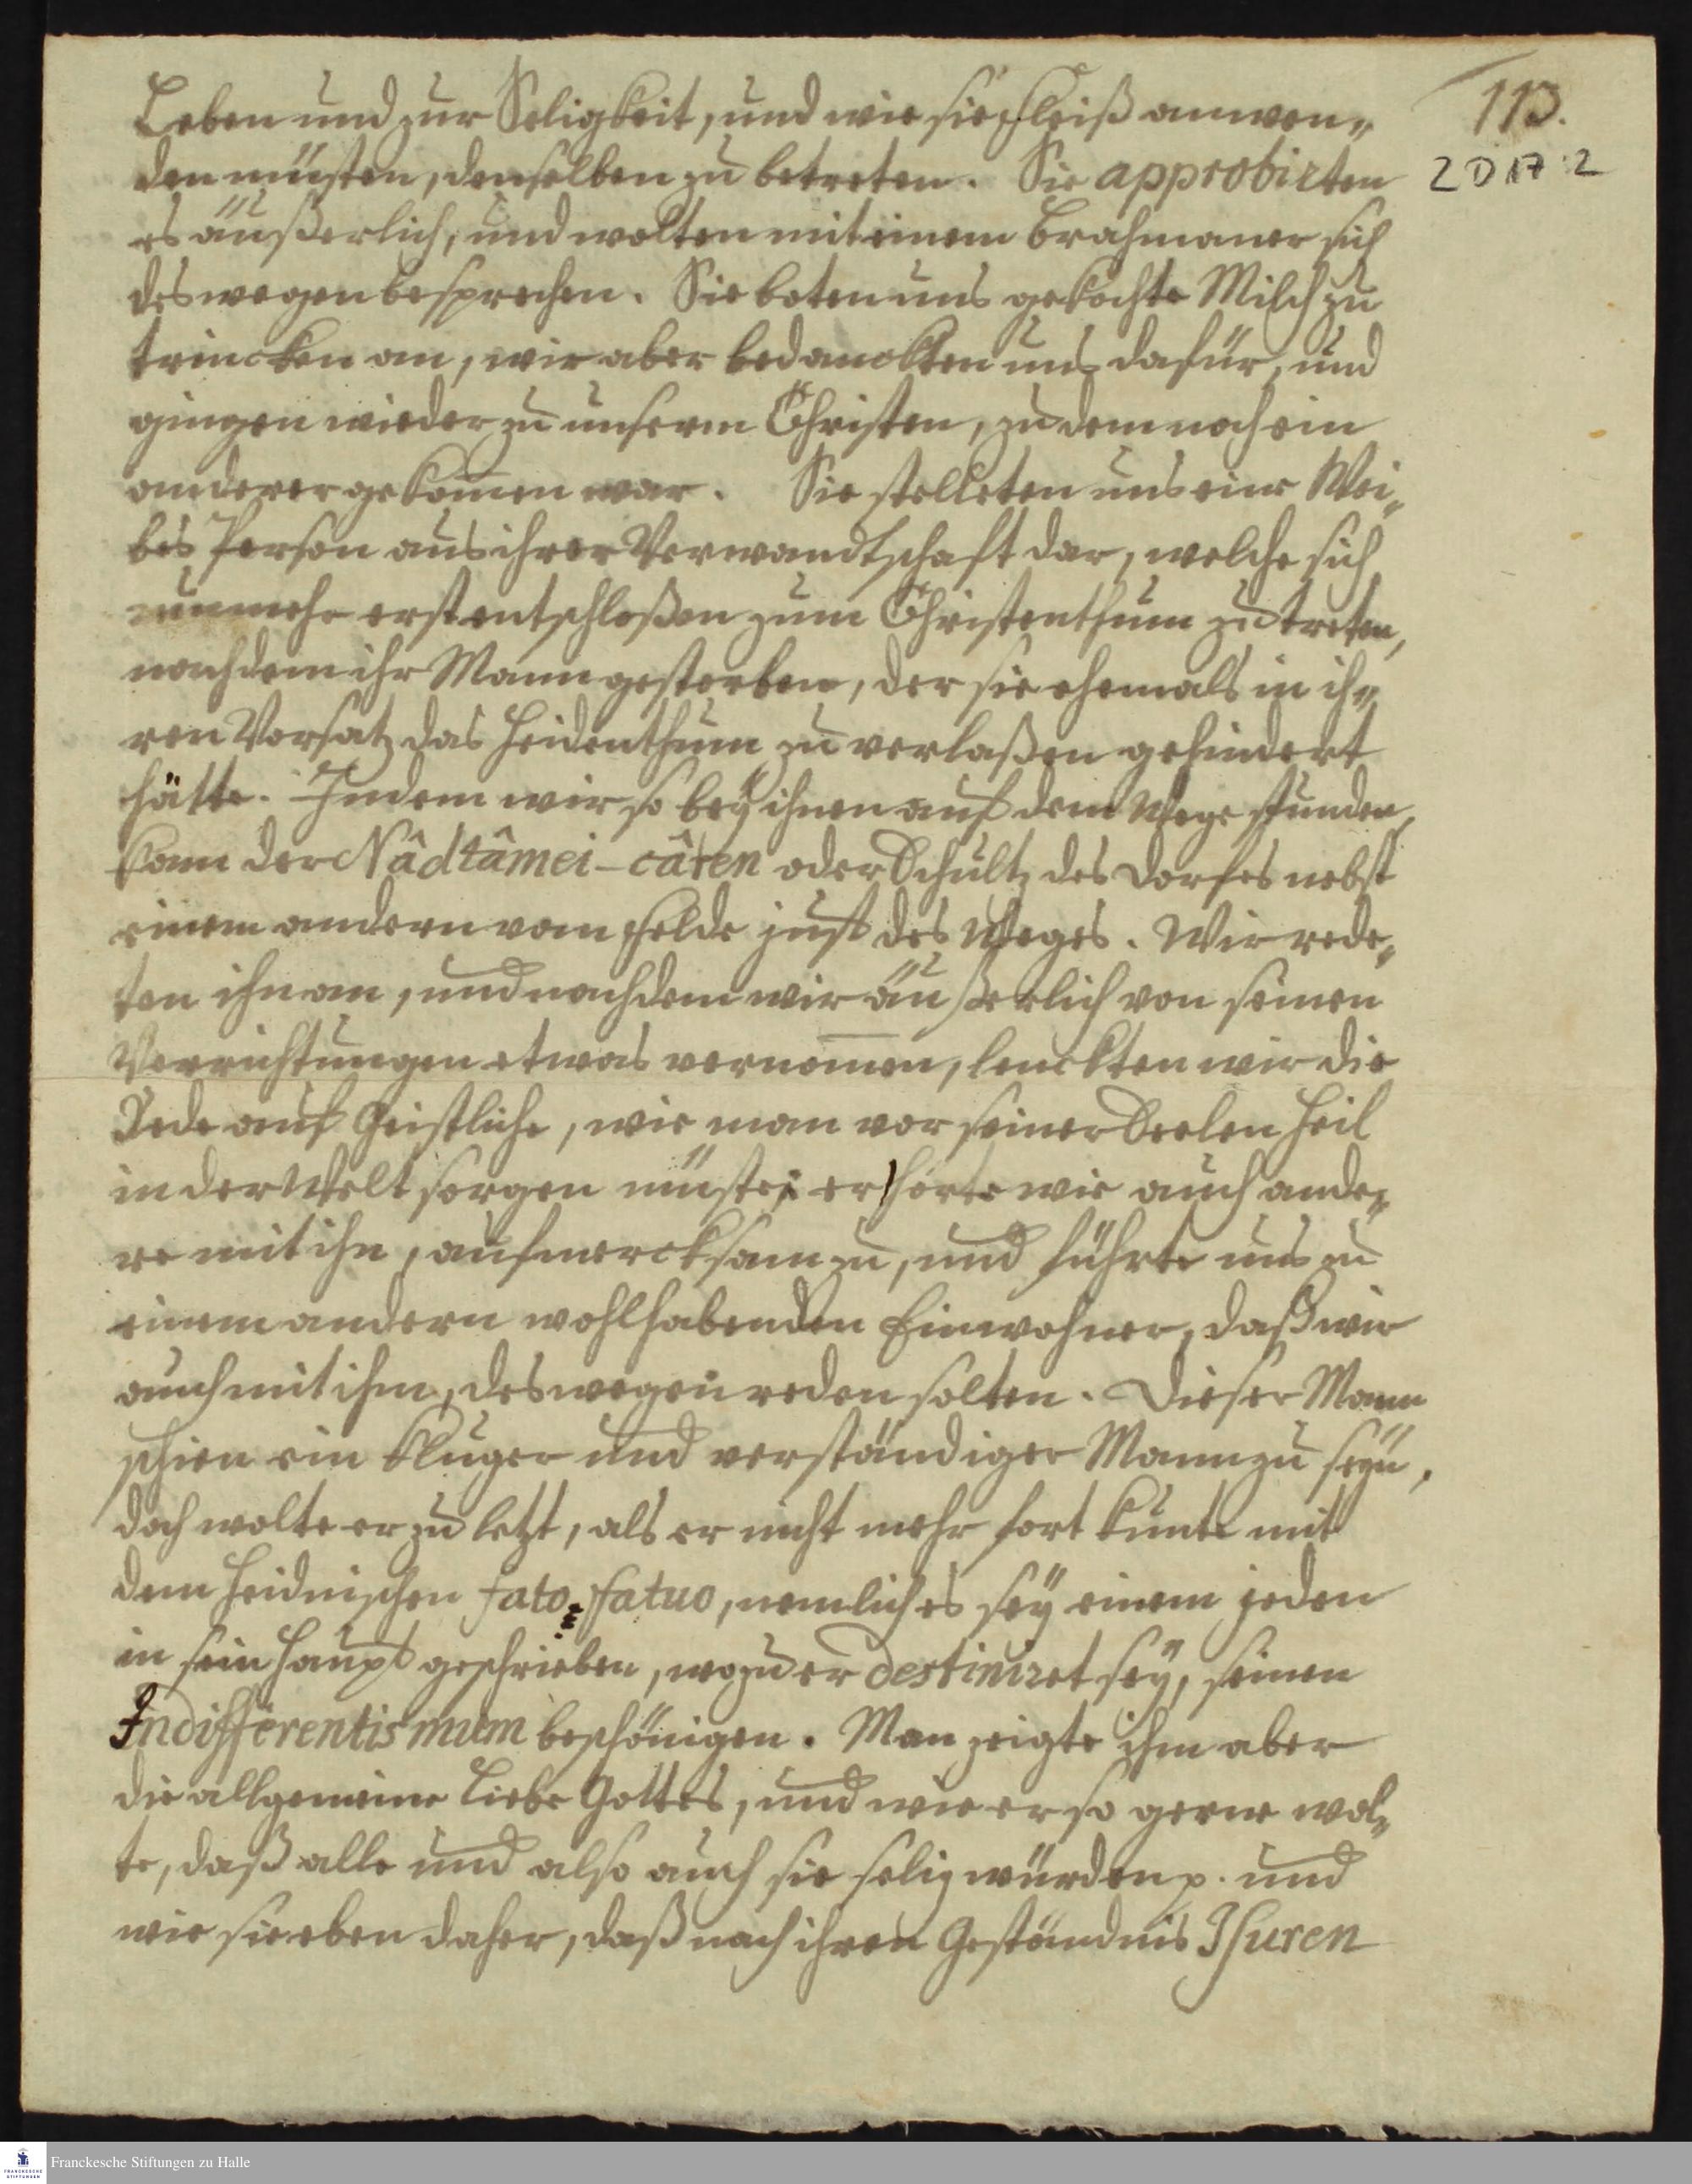 113.
2 D 17 : 2
Leben und zur Seligkeit, und wie sie Fleiß anwen„
den müsten, denselben zu betreten. Sie approbirten
es äußerlich, und wolten mit einem Brahmaner sich
deswegen besprechen. Sie boten uns gekochte Milch zu
trincken an, wir aber bedanckten uns dafür, und
gingen wieder zu unserm Christen, zu dem noch ein
anderer gekom̅en war. Sie stelleten uns eine Wei„
bes Person aus ihrer Verwandtschaft dar, welche sich
nunmehr erst entschloßen zum Christenthum zu treten,
nachdem ihr Mann gestorben, der sie ehemals in ih„
ren Vorsatz das Heidenthum zu verlaßen gehindert
hätte. Indem wir so beÿ ihnen auf dem Wege stunden,
kam der Nâdtâmei-câren oder Schultz des Dorfes nebst
einem andern vom Felde just des Weges. Wir rede„
ten ihn an, und nachdem wir äußerlich von seinen
Verrichtungen etwas vernom̅en, lenckten wir die
Rede auf Geistliche, wie man vor seiner Seelen Heil
in der Welt sorgen müste; er hörte wie auch ande„
re mit ihn, aufmercksam zu, und führte uns zu
einem andern wohlhabenden Einwohner, daß wir
auch mit ihm, deswegen reden solten. Dieser Mann
schien ein kluger und verständiger Mann zu seÿn,
doch wolte er zu letzt, als er nicht mehr fort kunte mit
dem Heidnischen fato fatuo, nemlich es seÿ einem jeden
in sein Haupt geschrieben, wozu er destiniret seÿ, seinen
Indifferentismum beschönigen. Man zeigte ihm aber
die allgemeine Liebe Gottes, und wie er so gerne wol„
te, daß alle und also auch sie selig würden p. und
wie sie eben daher, daß nach ihren Geständnis Isuren
Franckesche Stiftungen zu Halle
FRANCKESCHE
STIFTUNGEN